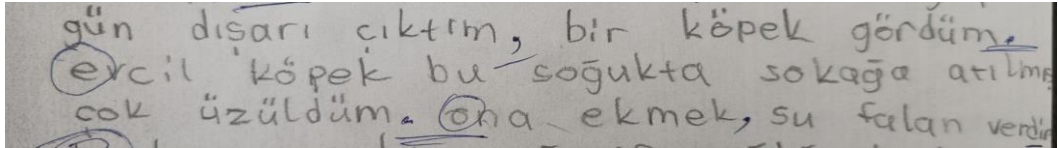 gün dışarı çıktım, bir köpek gördüm.
ercil köpek bu soğukta sokağa atılmı
çok üzüldüm. ona ekmek, su falan verdim